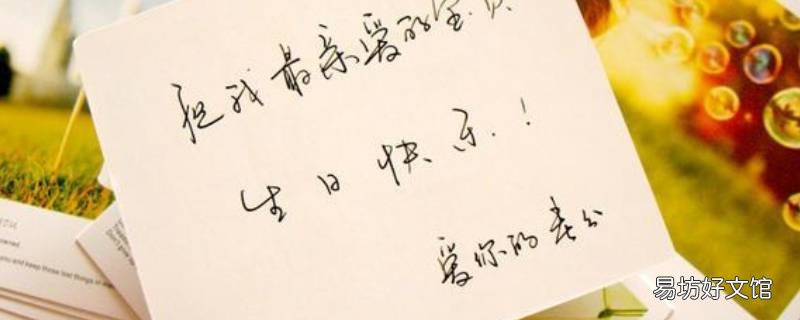 祝我最亲爱的宝贝
生日快乐.!
爱你的老公
and keep those lost things
易坊好文馆